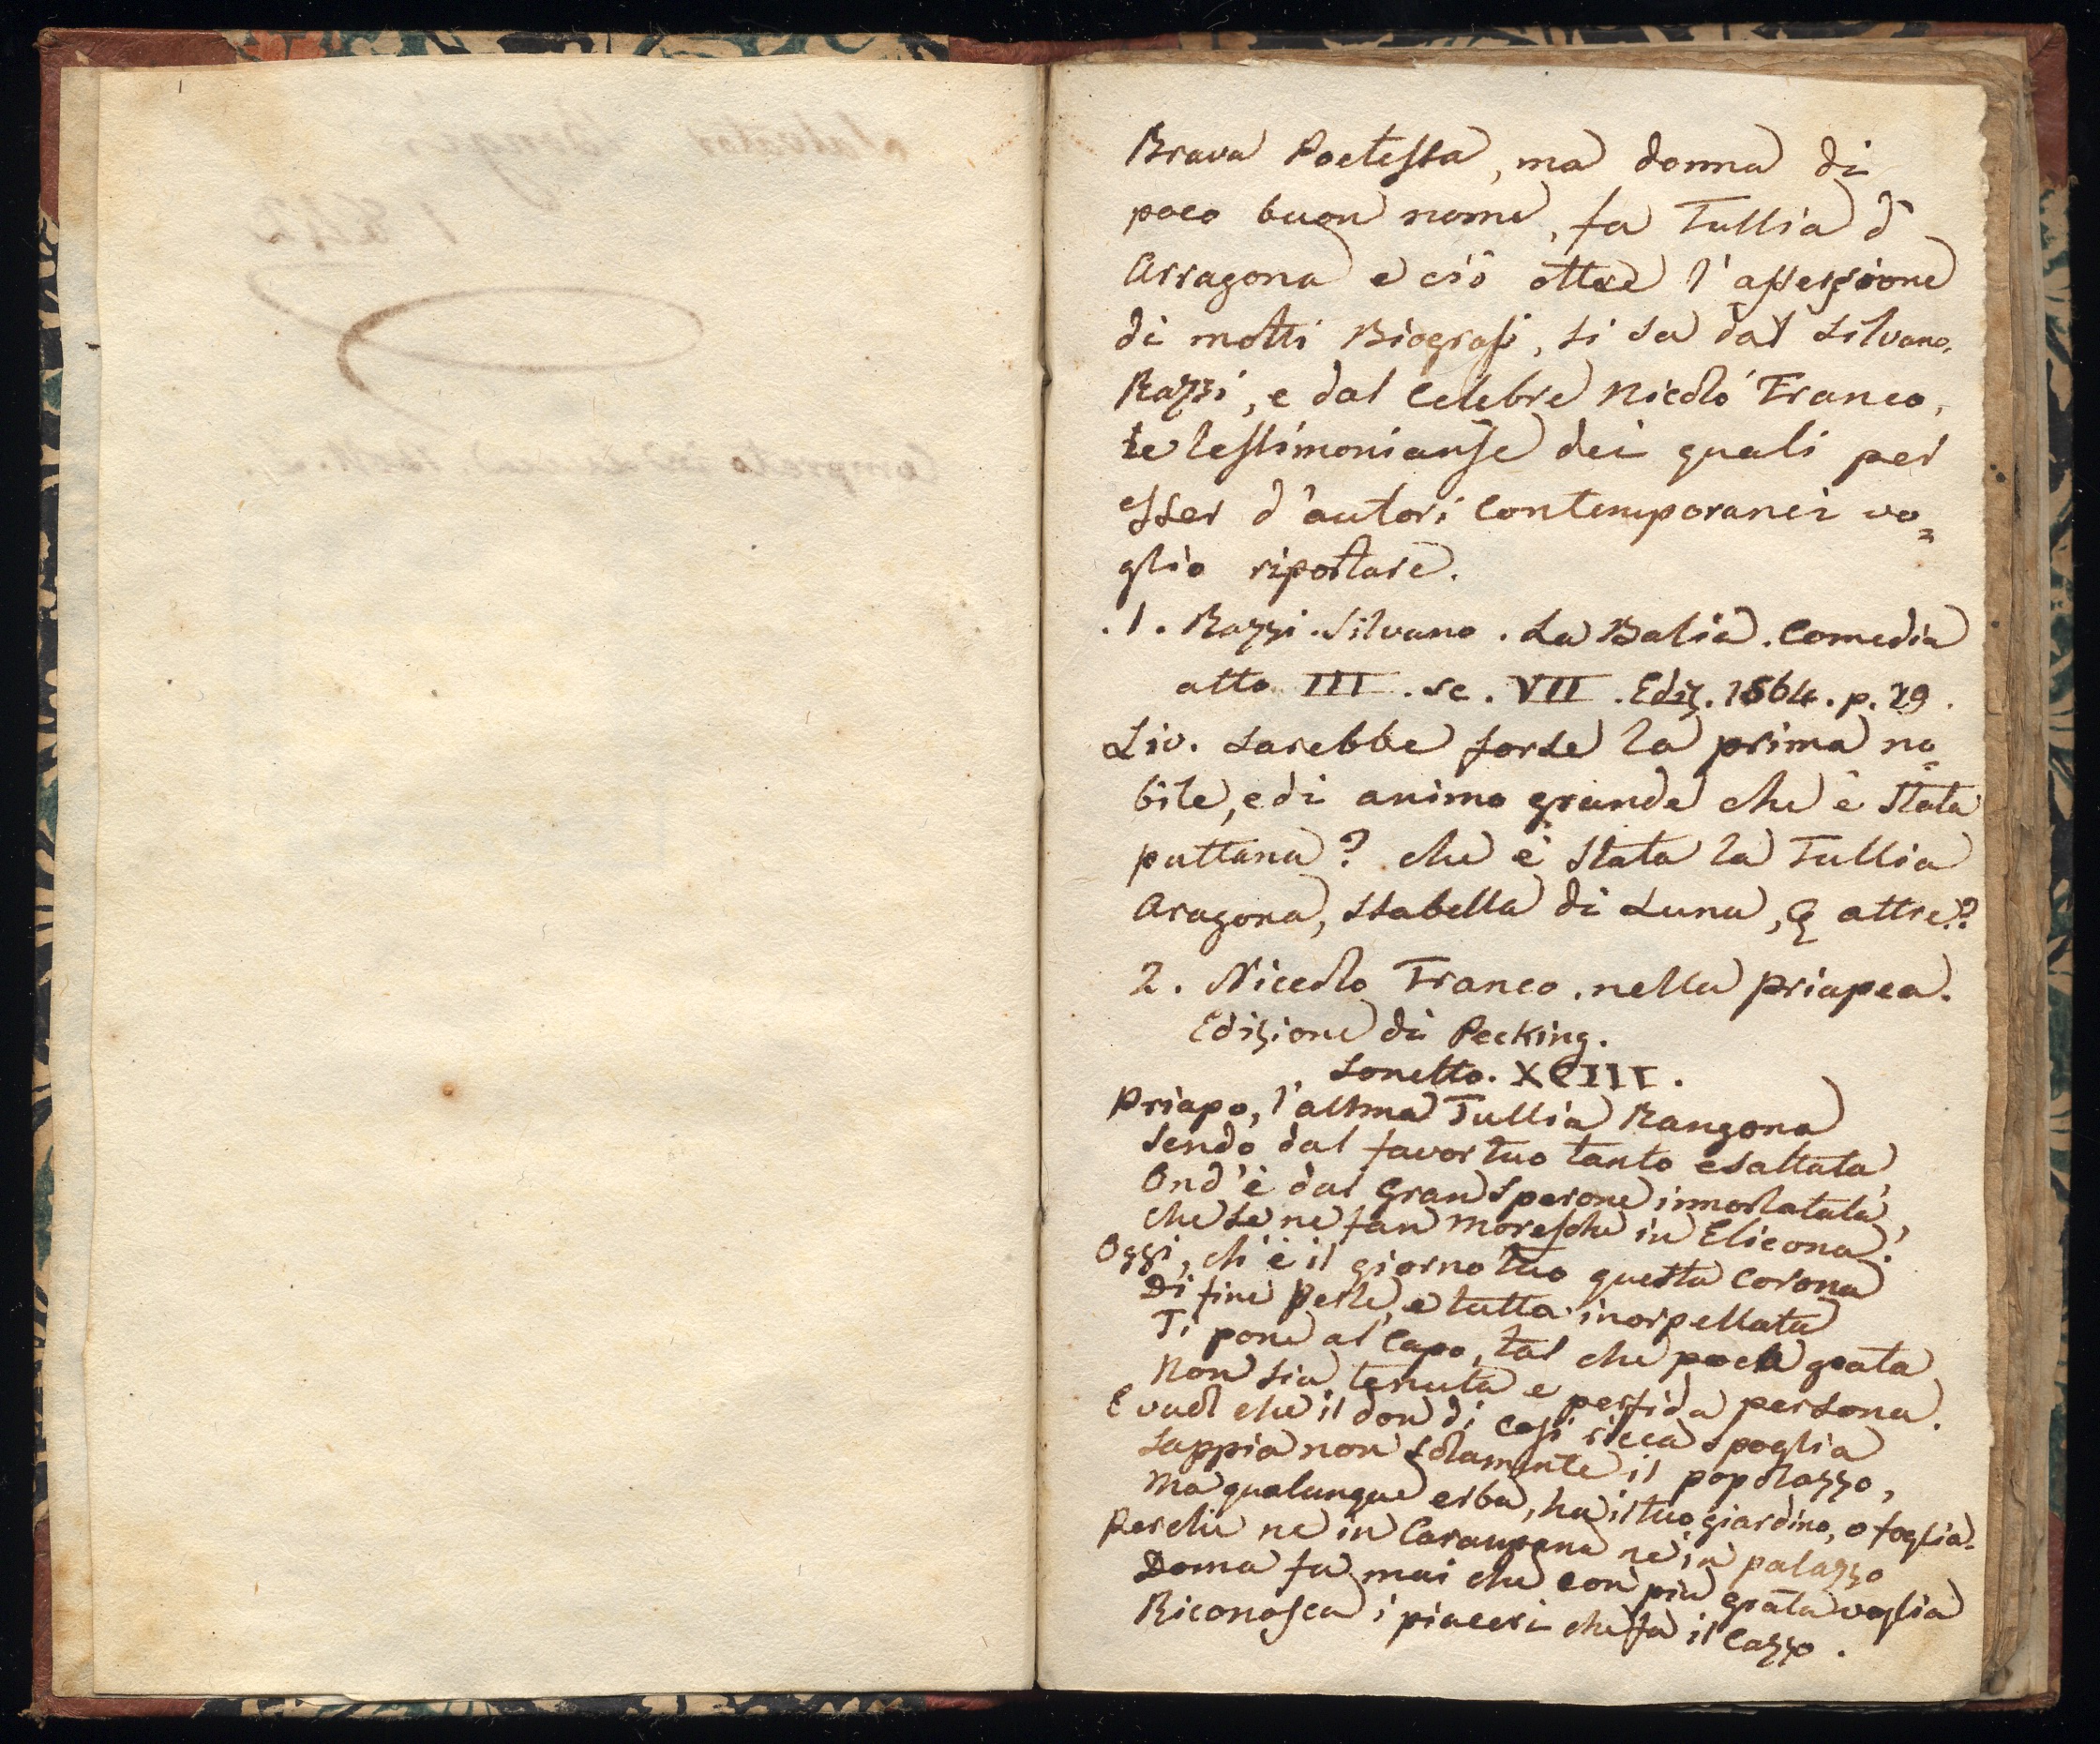 Brava Poetessa, ma donna di
poco buon nome, fu Tullia d'
Arragona e ciò oltre l'asserzione
di molti Biografi, si sa dal Silvano
Razzi, e dal celebre Nicolò Franco,
le testimonianze dei quali per
esser d'autori contemporanei vo=
glio riportare.
.1. Razzi. Silvano. La Balia. Comedia
atto III. sc. VII. Ediz. 1564. p. 29.
Liv. Sarebbe forse la prima no=
bile, e di animo grande che è stata
puttana? che è stata la Tullia
Aragona, Isabella di Luna, & altre??
2. Nicolo Franco. nella Priapea.
Edizione di Pecking.
Sonetto. XCIII.
Priapo, l'alma Tullia Rangona
Sendo dal favor tuo tanto esaltata,
Ond'è dal gran Sperone immortalata,
Che se ne fan moresche in Elicona:
Oggi, ch'è il giorno tuo questa corona
Di fine perle, e tutta inorpellata
Ti pone al capo, tal che poco grata
Non sia tenuta e perfida persona.
E vuol che il don di così ricca spoglia
Sappia non solamente il popolazzo,
Ma qualunque erba, ha il tuo giardino, o foglia.
Perchè ne in Carampana ne in palazzo
Donna fu mai che con più grata voglia
Riconosca i piaceri che fa il cazzo.